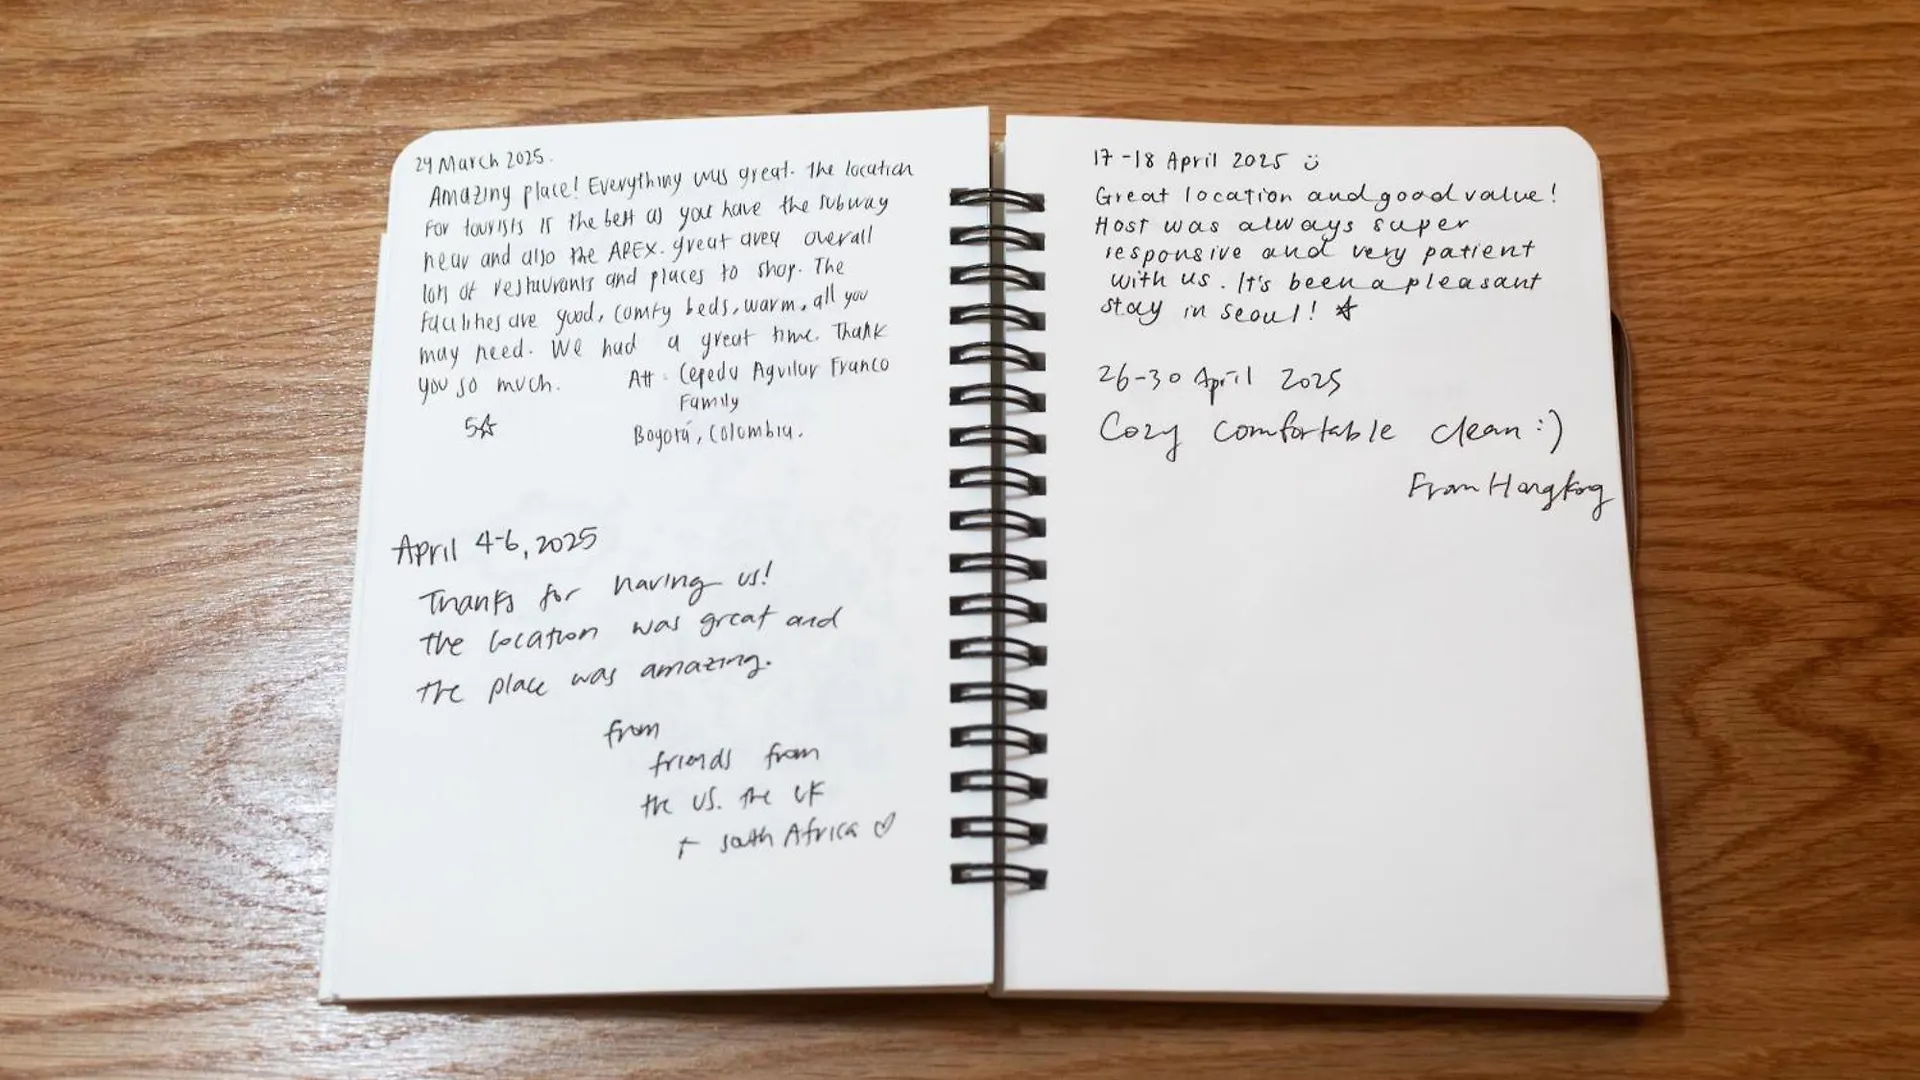 29 March 2025.
Amazing place! Everything was great. The location
for tourists is the best as you have the subway
near and also the AREX. great area overall
lots of restaurants and places to shop. The
facilities are good, comfy beds, warm, all you
may need. We had a great time. Thank
you so much.
Att: Cepeda Aguilar Franco
Family
5☆
Bogotá, Colombia.
April 4-6, 2025
Thanks for having us!
the location was great and
the place was amazing.
from
friends from
the US. the UK
+ south Africa ♡
17-18 April 2025 ü
Great location and good value!
Host was always super
responsive and very patient
with us. It's been a pleasant
stay in seoul! ☆
26-30 April 2025
Cozy comfortable clean :)
From Hongkong